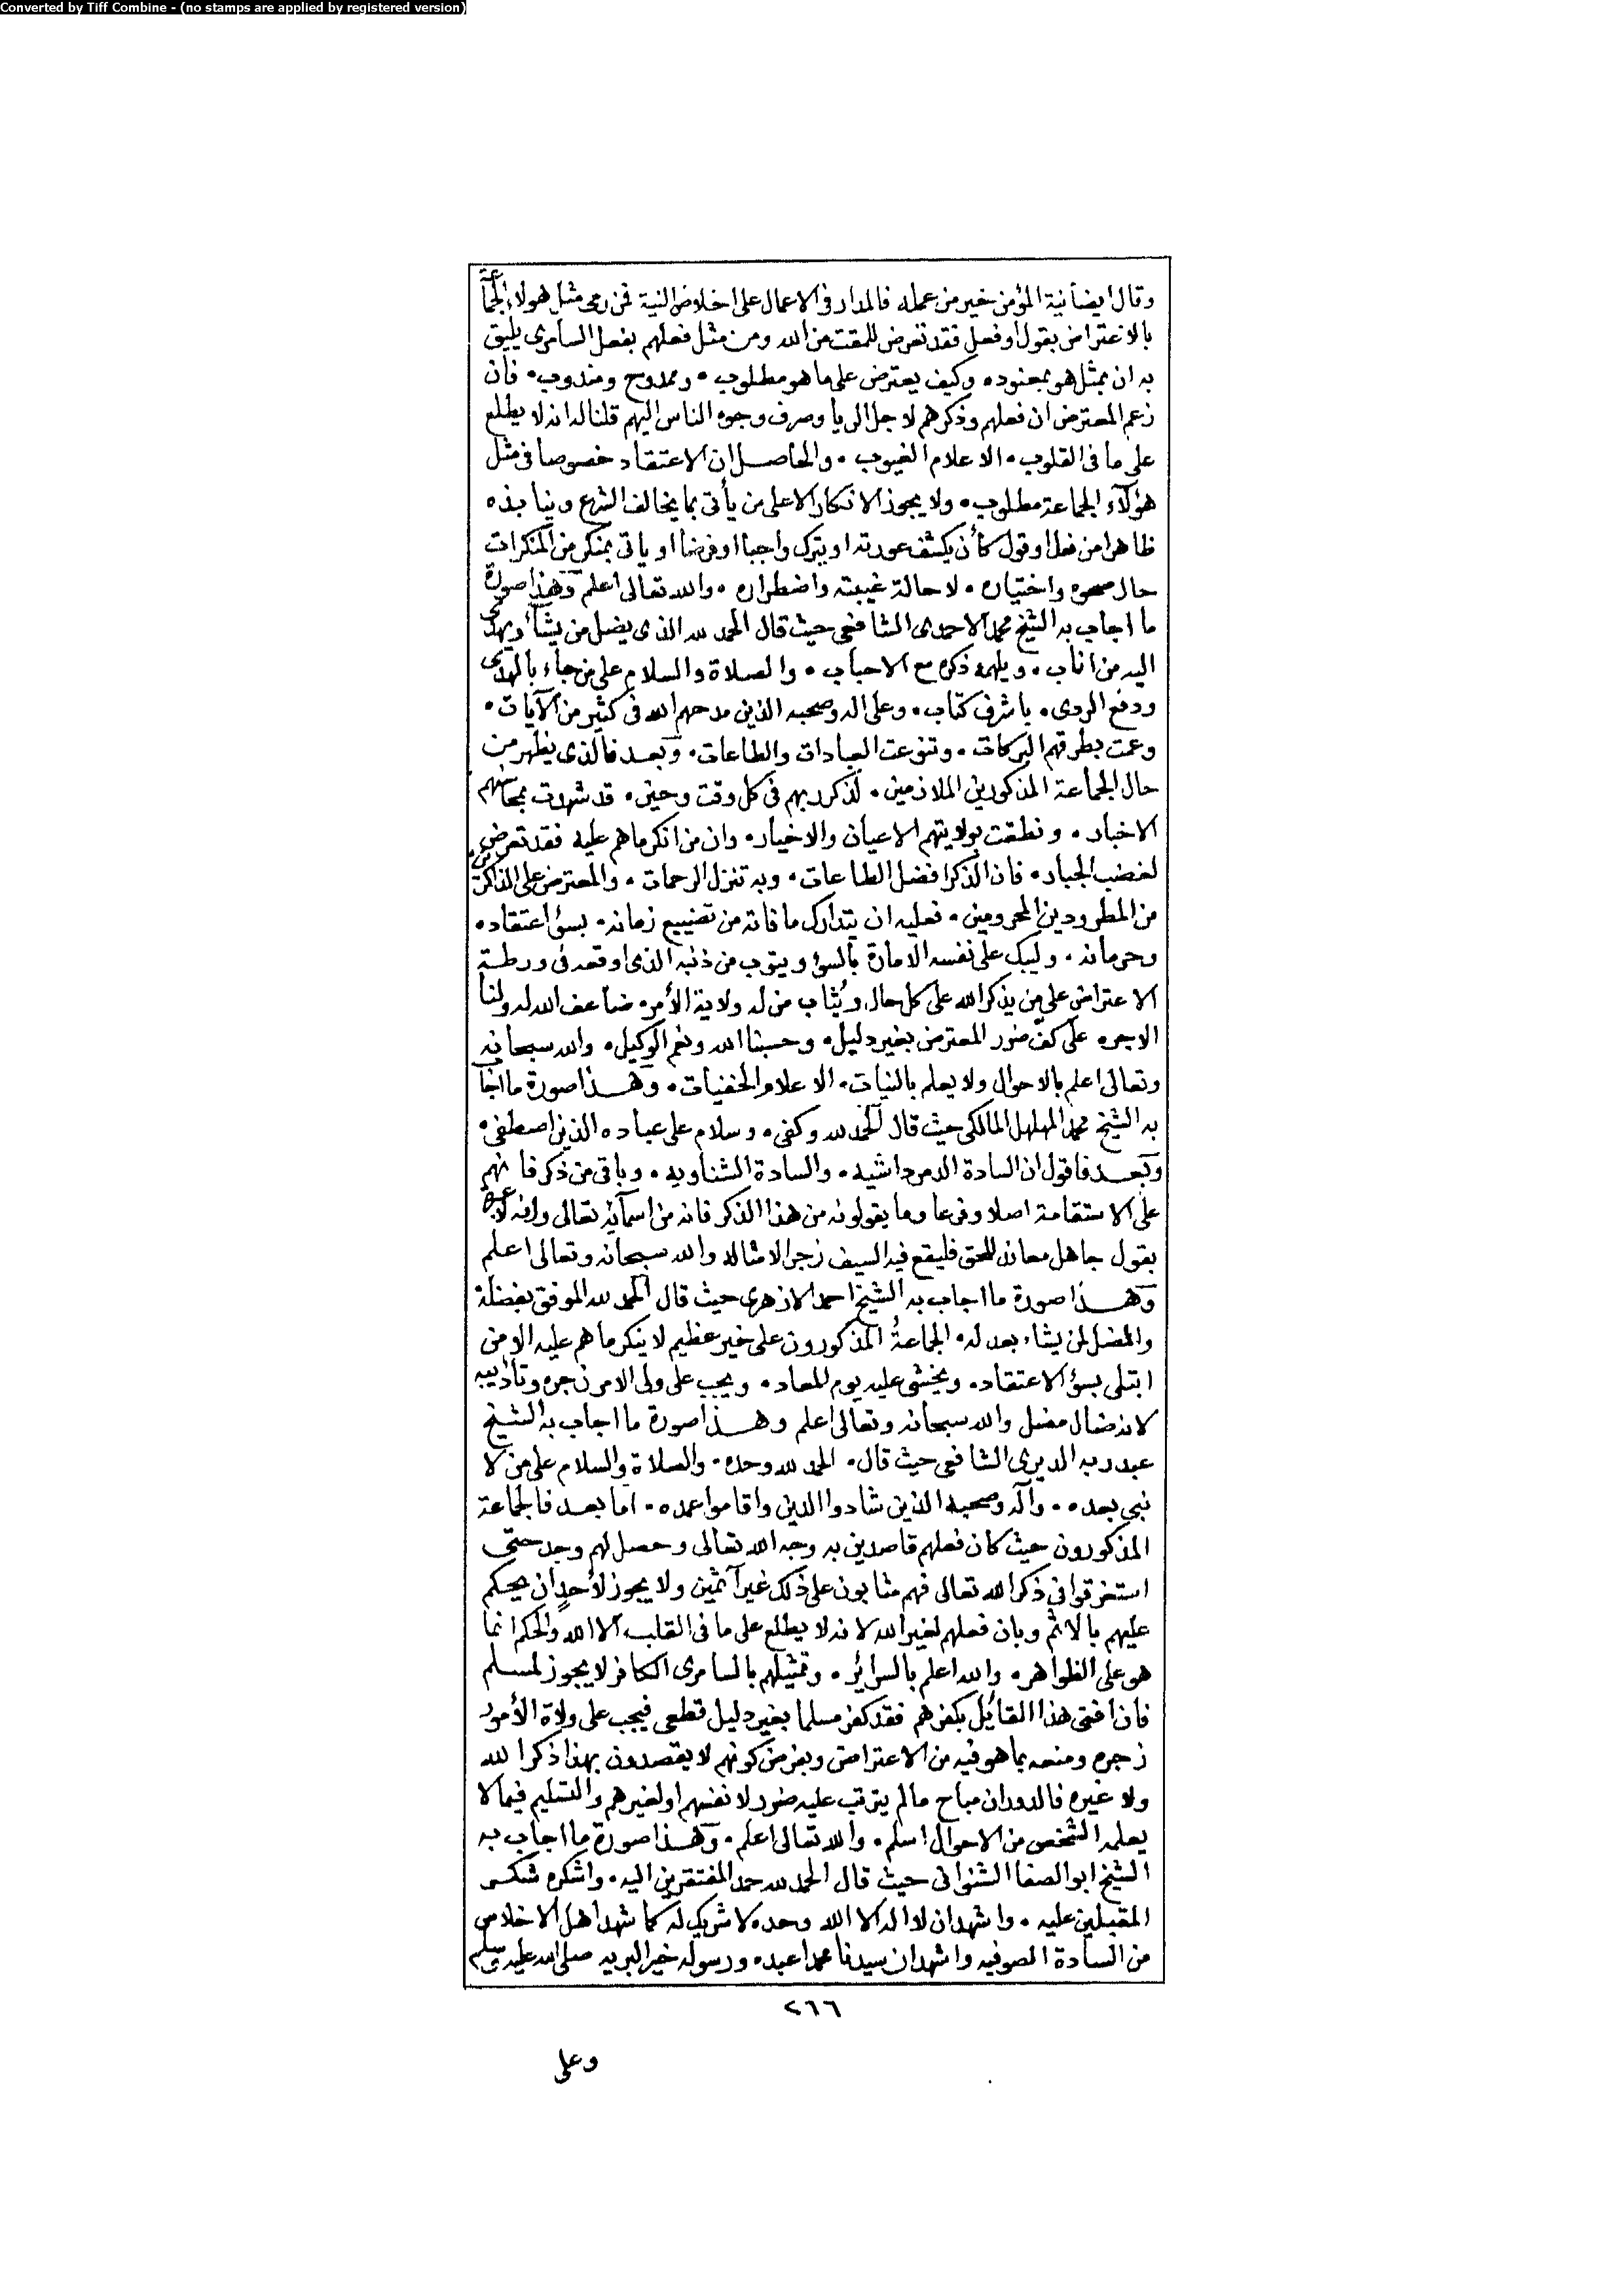 Converted by Tiff Combine - (no stamps are applied by registered version)
وقال ايضا نية المؤمن خير من عمله فالمدار فى الاعمال على اخلاص النية فمن رمى مثل هولاء الجماعة
بالاعتراض بقول او فعل فقد تعرض للمقت من الله ومن مثل فعلهم بفعل السامرى يليق
به ان يمثل هو بجنوده وكيف يعترض على ما هو مطلوب • وممدوح ومندوب • فان
زعم المعترض ان فعلهم وذكرهم لاجل الريا وصرف وجوه الناس اليهم قلنا له انه لا يطلع
على ما فى القلوب • الا علام الغيوب • والحاصل ان الاعتقاد خصوصا فى مثل
هؤلآء الجماعة مطلوب • ولا يجوز الانكار الا على من يأتى بما يخالف الشرع وينابذه
ظاهرا من فعل او قول كأن يكشف عورته او يترك واجبا او فرضا او ياتى بمنكر من المنكرات
حال صحوه واختياره • لا حالة غيبته واضطراره • والله تعالى اعلم وهذا صورة
ما اجاب به الشيخ محمد الاحمدى الشافعى حيث قال الحمد لله الذى يضل من يشآء ويهدى
اليه من اناب • ويلهمه ذكره مع الاحباب • والصلاة والسلام على من جاء بالهدى
ودفع الردى • باشرف كتاب • وعلى اله وصحبه الذين مدحهم الله فى كثير من الآيات •
وعمت بطرقهم البركات • وتنوعت العبادات والطاعات • وبعد فالذى يظهر من
حال الجماعة المذكورين الملازمين • لذكر ربهم فى كل وقت وحين • قد شهدت بمحاسنهم
الاخبار • ونطقت بولايتهم الاعيان والاخيار • وان من انكر ما هم عليه فقد تعرض
لغضب الجبار • فان الذكر افضل الطاعات • وبه تنزل الرحمات • والمعترض على الذاكرين
من المطرودين المحرومين • فعليه ان يتدارك ما فاته من تضييع زمانه • بسؤ اعتقاده •
وحرمانه • وليبك على نفسه الامارة بالسؤ ويتوب من ذنبه الذى اوقعه فى ورطة
الاعتراض على من يذكر الله على كل حال ويُثاب من له ولاية الأمر • ضاعف الله له ولنا
الاجر • على كفّ ضرر المعترض بغير دليل • وحسبنا الله ونعم الوكيل • والله سبحانه
وتعالى اعلم بالاحوال ولا يعلم بالنيات • الا علام الخفيات • وهذا صورة ما اجا
به الشيخ محمد المهلهل المالكى حيث قال الحمد لله وكفى • وسلام على عباده الذين اصطفى •
وبعد فاقول ان السادة الدمرداشيه • والسادة الشناويه • وباقى من ذكر فانهم
على الاستقامة اصلا وفرعا وما يقولونه من هذا الذكر فانه من اسمآئه تعالى وانه لا عبرة
بقول جاهل معاند للحق فليقع فيه السيف زجرا لامثاله والله سبحانه وتعالى اعلم
وهذا صورة ما اجاب به الشيخ احمد الازهرى حيث قال الحمد لله الموفق بفضله
والمضل لمن يشاء بعدله • الجماعةُ المذكورون على خير عظيم لا ينكر ما هم عليه الا من
ابتلى بسؤ الاعتقاد • ويخشى عليه يوم المعاد • ويجب على ولى الامر زجره وتأديبه
لانه ضال مضل والله سبحانه وتعالى اعلم وهذا صورة ما اجاب به الشيخ
عبد ربه الديرى الشافعى حيث قال • الحمد لله وحده • والصلاة والسلام على من لا
نبى بعده • وآله وصحبه الذين شادوا الدين واقاموا عمده • اما بعد فالجماعة
المذكورون حيث كان فعلهم قاصدين به وجه الله تعالى وحصل لهم وجد حتى
استغرقوا فى ذكر الله تعالى فهم مثابون على ذلك غير آثمين ولا يجوز لأحدٍ ان يحكم
عليهم بالاثم وبان فعلهم لغير الله لانه لا يطلع على ما فى القلب الا الله والحكم انما
هو على الظواهر • والله اعلم بالسرائر • وتمثيلهم بالسامرى الكافر لا يجوز لمسلم
فان افتى هذا القائل بكفرهم فقد كفر مسلما بغير دليل قطعى فيجب على ولاة الأمور
زجره ومنعه بما هو فيه من الاعتراض وبفرض كونهم لا يقصدون بهذا ذكرا لله
ولا غيره فالدوران مباح ما لم يترتب عليه ضرر لانفسهم او لغيرهم والتسليم فيما لا
يعلمه الشخص من الاحوال اسلم • والله تعالى اعلم • وهذا صورة ما اجاب به
الشيخ ابو الصفا الشنوانى حيث قال الحمد لله حمد المفتقرين اليه • واشكره شكر
المقبلين عليه • واشهد ان لا اله الا الله وحده لا شريك له كما شهد اهل الاخلاص
من السادة الصوفيه واشهد ان سيدنا محمدا عبده ورسوله خير البريه صلى الله عليه وسلم
٢٦٦
وعلى